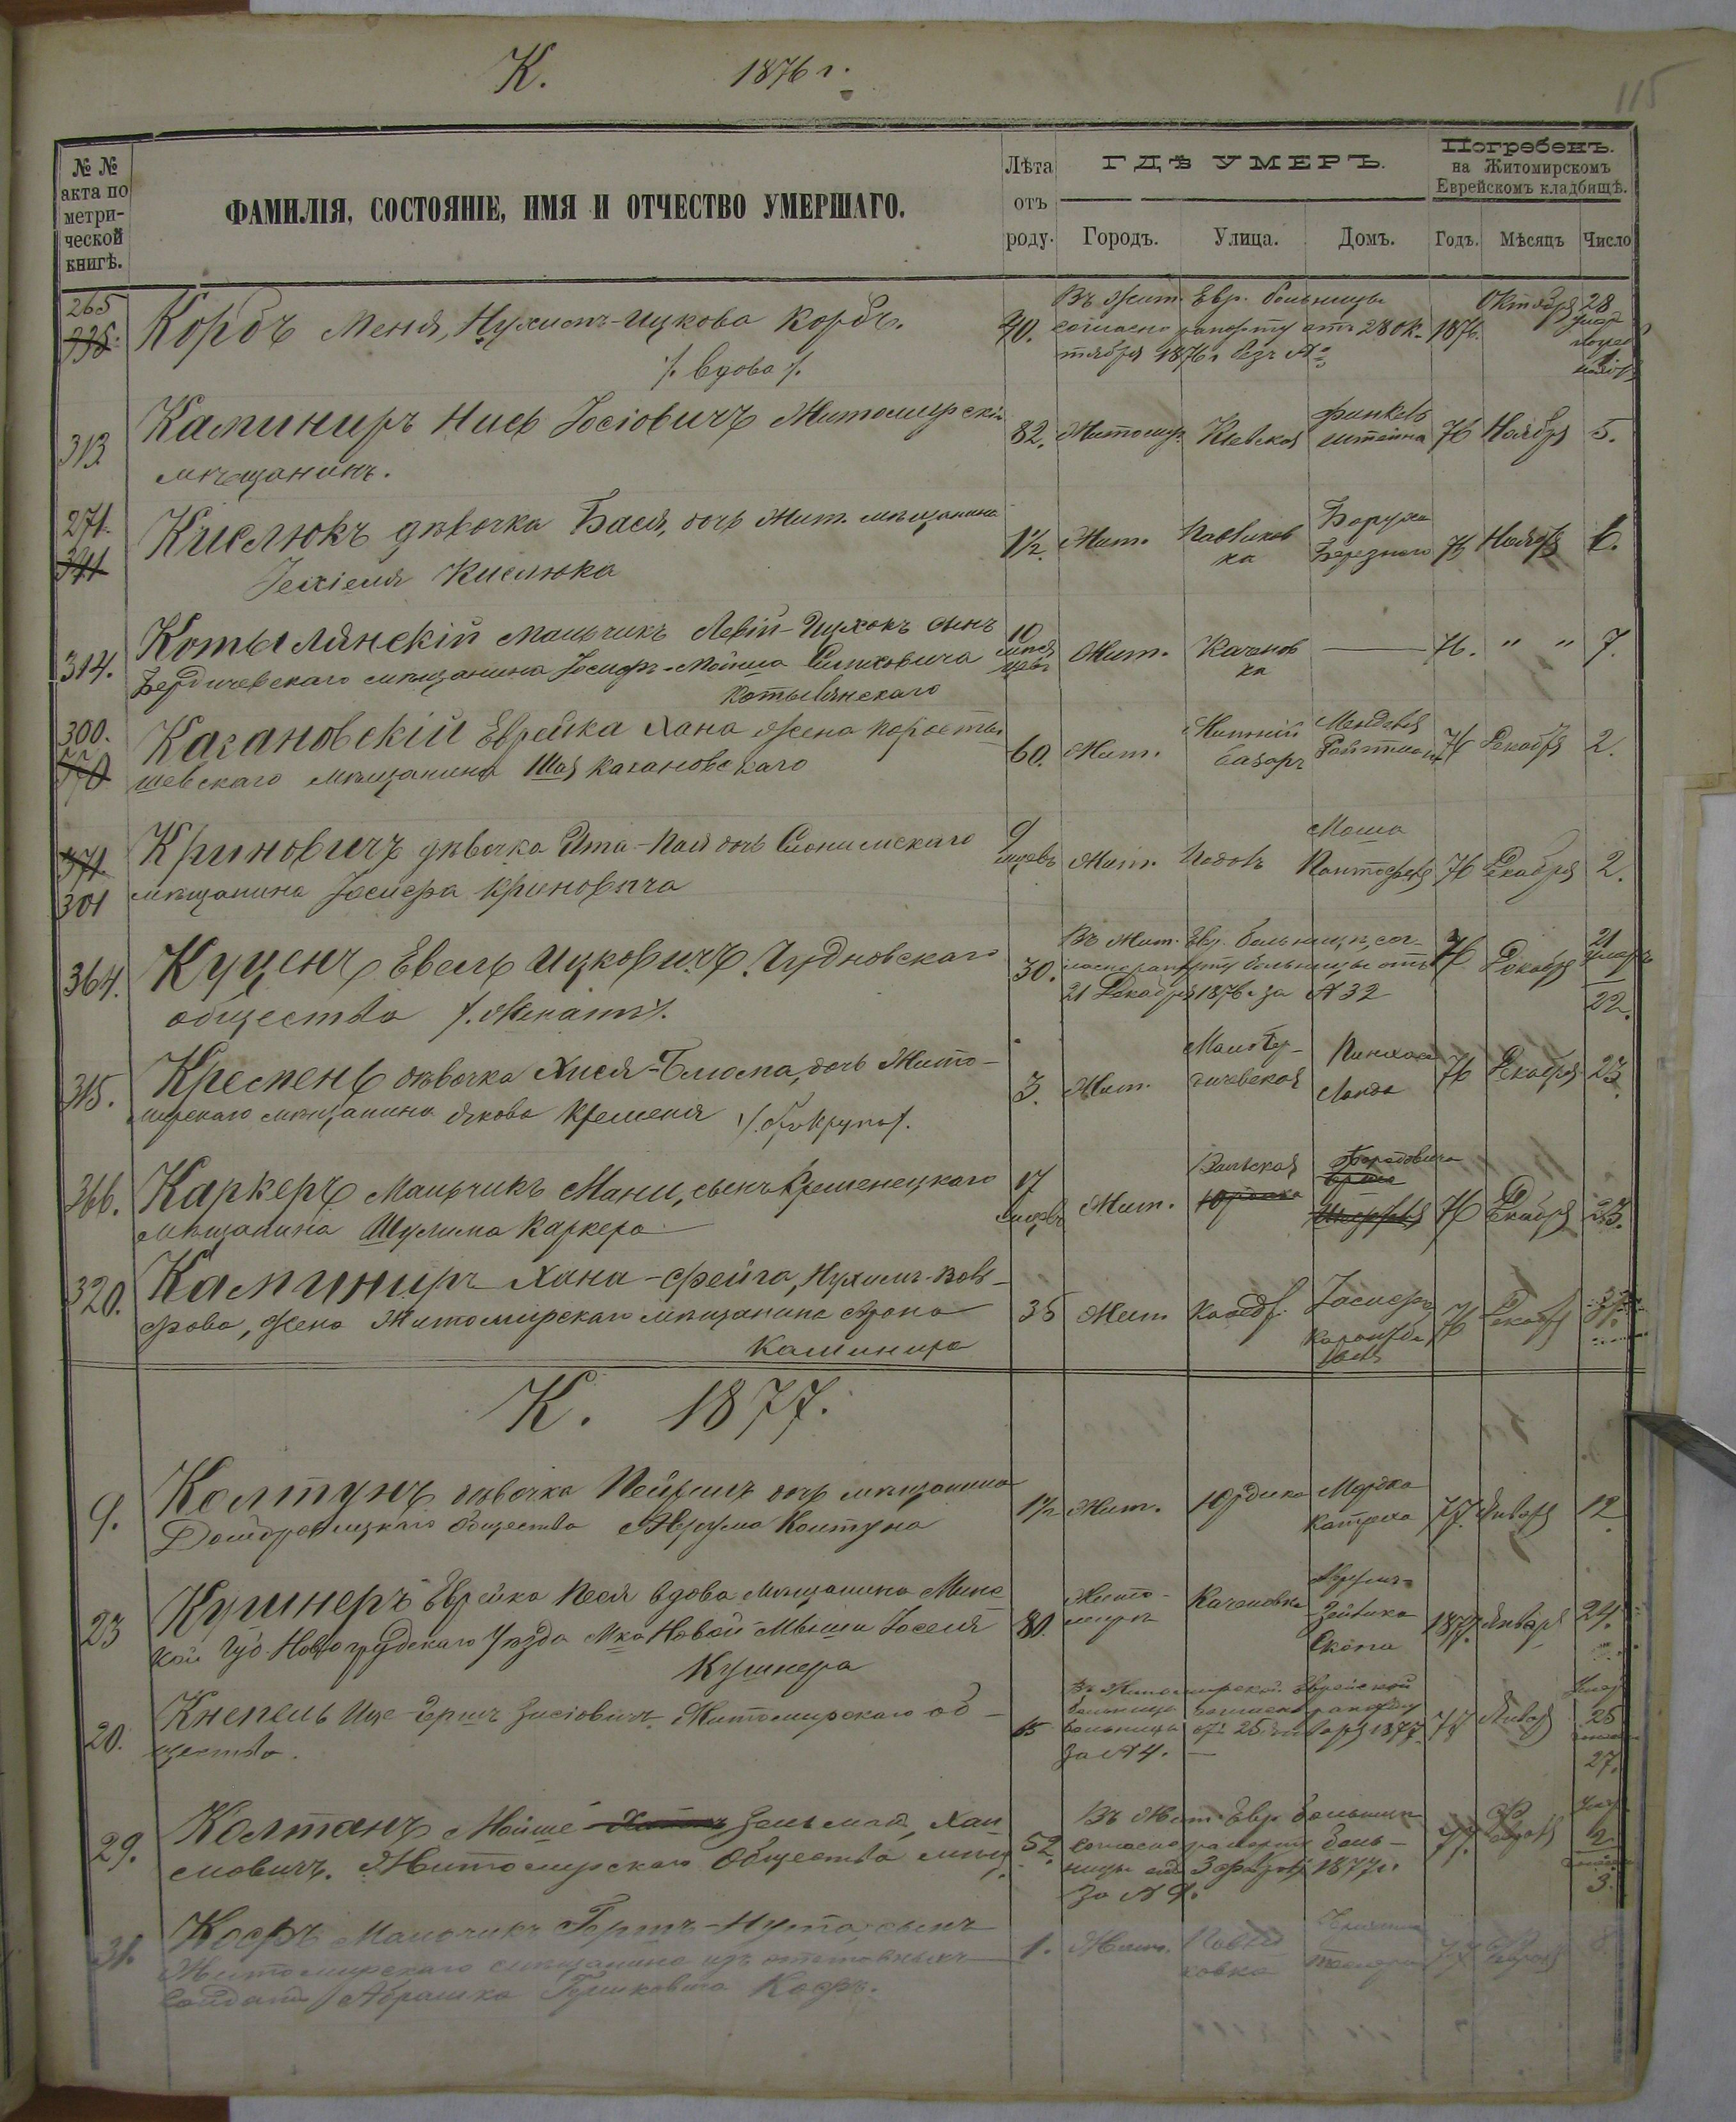 К. 1876 г.
115
№ №
акта по
метри-
ческой
книгѣ.
ФАМИЛІЯ, СОСТОЯНІЕ, ИМЯ И ОТЧЕСТВО УМЕРШАГО.
Лѣта
отъ
роду.
ГДѢ УМЕРЪ.
Городъ. Улица. Домъ.
Погребенъ.
на Житомирскомъ
Еврейскомъ кладбищѣ.
Годъ. Мѣсяцъ Число
265
335.
Корбъ Меня, Нухимъ-Ицкова Корбъ.
/. вдова /.
40.
Въ Жит. Евр. больницы
согласно рапорту отъ 28 Ок-
тября 1876 г. безъ №
1876. Октября 28
313
Каминиръ Нисъ Іосіовичъ Житомирскій
мѣщанинъ.
82. Житомир. Кіевская Финкель
штейна 76 Ноября 5.
271.
341
Кислюкъ дѣвочка Бася, дочь Жит. мѣщанина
Іехіеля Кислюка
1½. Жит. Павликов
ка Боруха
Березного 76 Ноября 6.
314.
Котылянскій мальчикъ Левій-Ицхокъ сынъ
Бердичевскаго мѣщанина Іосифъ-Мойша
Котылянскаго
10
мѣся
цевъ Жит. Качанов
ка — 76. " " 7.
300.
370
Кагановскій Еврейка Хана жена Коросты
шевскаго мѣщанина Шая Кагановскаго
60. Жит. Житній
базаръ Менделя
Ройтман 76 Декабря 2.
371.
301
Криновичъ дѣвочка Ита-Пая дочь Слонимскаго
мѣщанина Іосифа Криновича
9
мцевъ Жит. Подолъ Моша
76 Декабря 2.
364.
Куценъ Евель Ицковичъ Чудновскаго
общества /. женатъ /.
30.
Въ Жит. Евр. больницѣ, сог-
ласно рапорту больницы отъ
21 Декабря 1876 г. за № 32
76 Декабря 21
умеръ
22.
315.
Кремень дѣвочка Хися-Блюма, дочь Жито-
мирскаго мѣщанина Якова Кременя
3. Жит. Мало Бер-
дичевская Пинхаса
Ланда 76 Декабря 23
366.
Каркеръ Мальчикъ Мани, сынъ Кременецкаго
мѣщанина Шулима Каркера
17
мцевъ Жит. Вильская
Юрдика 76 Декабря 23.
320.
Каминиръ Хана-Фейга, Нухимъ-Воль-
фова, жена Житомирскаго мѣщанина Арона
Каминира
35 Жит Кафедр. Іосифа
76 Декабр 31.
К. 1877.
9.
Колтунъ дѣвочка Пейрлъ дочь мѣщанина
Домбровицкаго Общества Колтуна
1½ Жит. Юрдика Мордка
77. Января 12.
23
Кушнеръ Еврейка Песя вдова мѣщанина Минс
кой Губ Новогрудскаго Уѣзда М-ка Новой Мыши Іоселя
Кушнера
80. Жито-
миръ Качановка
1877. Января 24.
20.
Кнепель Ице-Гершъ Зисіовичъ, Житомирскаго об-
щества.
65
Въ Житомирской Еврейской
больницѣ согласно рапорту
больницы отъ 25 Января 1877
за № 4. —
77 Январ 25
27.
29.
Колтанъ Мойше Зельманъ, Хаи
мовичъ. Житомирскаго Общества мѣщ.
52
Въ Жит. Евр. больницѣ
согласно рапорту боль-
ницы отъ 3 Февраля 1877 г.
за № 9.
77. Феврал 2
3.
31.
Кофъ Мальчикъ Гершъ-Нута, сынъ
Житомирскаго мѣщанина изъ отставныхъ
солдатъ Абрашка Гершковича Кофъ.
1. Жит. Павли
ковка 77 Феврал